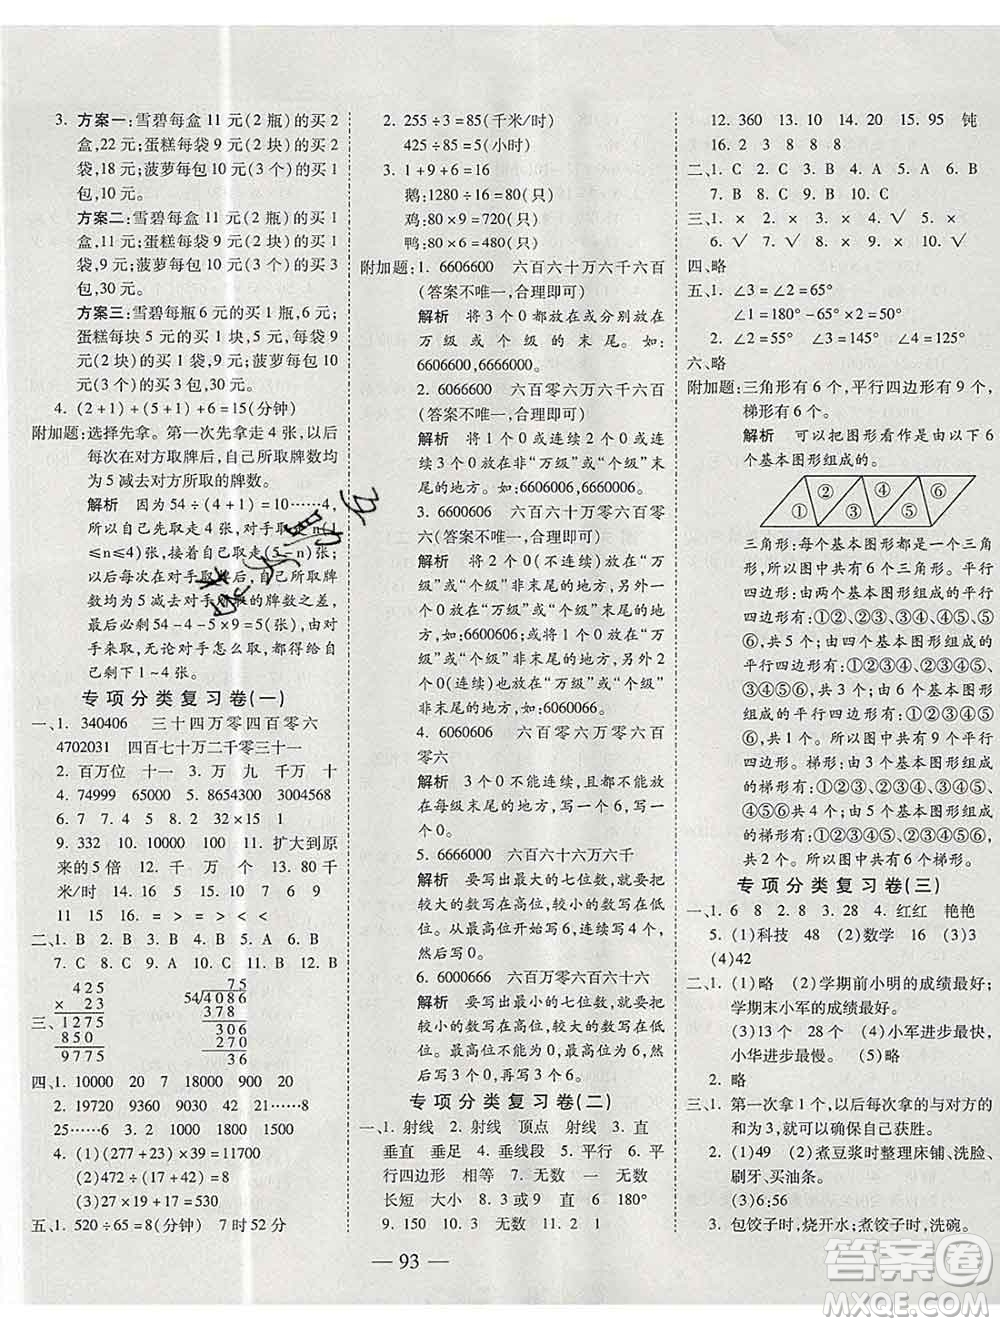 3. 方案一:雪碧每盒 11 元(2 瓶)的买 2
盒,22 元;蛋糕每袋 9 元(2 块)的买 2
袋,18 元;菠萝每包 10 元(3 个)的买 1
包,10 元。
方案二:雪碧每盒 11 元(2 瓶)的买 1
盒,11 元;蛋糕每袋 9 元(2 块)的买 1
袋,9 元;菠萝每包 10 元(3 个)的买 3
包,30 元。
方案三:雪碧每瓶 6 元的买 1 瓶,6 元;
蛋糕每块 5 元的买 1 块,5 元;每袋 9 元
(2 块)的买 1 袋,9 元;菠萝每包 10 元
(3 个)的买 3 包,30 元。
4. (2+1)+(5+1)+6=15(分钟)
附加题:选择先拿。第一次先拿走 4 张,以后
每次在对方取牌后,自己所取牌数均
为 5 减去对方所取的牌数。
解析 因为 54÷(4+1)=10……4,
所以自己先取走 4 张,对手取走 n(1
≤n≤4)张,接着自己取(5-n)张;以
后每次在对手取牌后,自己所取牌
数均为 5 减去对手取的牌数之差,
最后剩下 54-4-5×9=5(张),由对
手来取,无论对手怎么取,都会给自
己剩下 1~4 张。
专项分类复习卷(一)
一、1. 340406 三十四万零四百零六
4702031 四百七十万二千零三十一
2. 百万位 十一 3. 万 九 千万 十
4. 74999 65000 5. 8654300 3004568
6. 7 7 4. 15 7. 2 8. 32×15 1
9. 332 10. 10000 100 11. 扩大到原
来的 5 倍 12. 千 万 个 13. 80 千
米/时 14. 10400 15. 160 6 7 9
11 15 16. = > = > < >
二、1. B 2. B 3. C 4. B 5. A 6. B
7. C 8. B 9. A 10. C 11. B 12. B
三、
425
× 23
1275
850
9775
75
54 4086
378
306
270
36
四、1. 10000 20 7 18000 900 20
2. 19720 6310 9360 21……20
25……6 20……20 3. 1800 10000
4. (1)(277+23)×39=11700
(2)472÷(17+42)=8
(3)27×19+17=530
五、1. 520÷65=8(分钟) 7 时 52 分
2. 255÷3=85(千米/时)
425÷85=5(小时)
3. 1+9+6=16
鹅:1280÷16=80(只)
鸡:80×9=720(只)
鸭:80×6=480(只)
附加题:1. 6606600 六百六十万六千六百
(答案不唯一,合理即可)
解析 将 3 个 0 都放在或分别放在
万级或个级的末尾。如:
6606600,6666000。
2. 6060606 六百零六万零六百零六
(答案不唯一,合理即可)
解析 将 1 个 0 或连续 2 个 0 或连
续 3 个 0 放在非“万级”或“个级”末
尾的地方。如:6606006,6600066。
3. 6006606 六百万零六千六百零
六(答案不唯一,合理即可)
解析 将 1 个 0(不连续)放在“万
级”或“个级”非末尾的地方,另外 2
个 0(连续)放在“万级”或“个级”非
末尾的地方,如:6600606;或将 1 个
0(不连续)放在“万级”或“个级”末
尾的地方,另外 2 个 0(连续)放在“万
级”或“个级”非末尾的地方,如:
6600660;或将 1 个 0 放在“万级”或
“个级”非末尾的地方,另外
2 个 0(连续)也放在“万级”或“个
级”末尾的地方,如:6060600。
4. 6060606 六百零六万零六百
零六
解析 3 个 0 不能连续,且都不能放
在每级末尾的地方,写一个 6,写一
个 0,写一个 6,写一个 0,写一个 6,
写一个 0,写一个 6。
5. 6666000 六百六十六万六千
解析 要写出最大的七位数,就要
把较大的数写在高位,较小的数写
在低位。从最高位开始写 6,写完 4
个 6,然后写 0。
6. 6000666 六百万零六百六十六
解析 要写出最小的七位数,就要
把较小的数写在高位,较大的数写
在低位。最高位不能为 0,所以最高
位写 6,再写三个 0,最后写三个 6。
专项分类复习卷(二)
一、1. 射线 2. 射线 顶点 射线 3. 直
垂直 垂足 4. 垂线段 5. 平行 6. 平
行四边形 相等 7. 无数 一 无数
长短 大小 8. 3 或 9 直 6 180°
9. 150 10. 3 无数 11. 2 1
12. 360 13. 10 14. 20 15. 95 钝
16. 2 3 8 8 8
二、1. C 2. C 3. B 4. A 5. A 6. B
7. B 8. B 9. B 10. C
三、1. × 2. × 3. × 4. √ 5. √
6. × 7. √ 8. × 9. × 10. √
四、略
五、1. ∠3=∠2=65°
∠1=180°-65°×2=50°
2. ∠2=55° ∠3=125° ∠4=125°
六、略
附加题:三角形有 6 个,平行四边形有 9 个,
梯形有 6 个。
解析 可以把图形看作是由以下 6
个基本图形组成的。
① ② ③ ④ ⑤ ⑥
三角形:每个基本图形都是一个三角
形,所以图形共有 6 个三角形。平行
四边形:由两个基本图形组成的平行
四边形有:①②、②③、③④、④⑤、⑤⑥,
共 5 个;由四个基本图形组成的
平行四边形有:①②③④、②③④⑤、
③④⑤⑥,共 3 个;由 6 个基本图形
组成的平行四边形有:①②③④⑤⑥,
共 1 个。所以图形共有 9 个平行四
边形。梯形:由 3 个基本图形组成的
梯形有:①②③、②③④、③④⑤、
④⑤⑥共 4 个;由 5 个基本图形组成
的梯形有:①②③④⑤、②③④⑤⑥,
共 2 个。所以图形共有 6 个梯形。
专项分类复习卷(三)
一、1. 6 8 2. 8 3. 28 4. 红红 艳艳
5. (1)科技 48 (2)数学 16 (3)3
(4)42
二、1. (1)略 (2)学期前小明的成绩最好;
学期末小军的成绩最好。
(3)13 个 28 个 (4)小军进步最快,
小华进步最慢。 (5)略
2. 略
三、1. 第一次拿 1 个,以后每次拿的与对方的
和为 3,就可以确保自己获胜。
2. (1)49 (2)煮豆浆时整理床铺、洗脸、
刷牙、买油条。
(3)6:56
3. 包饺子时,烧开水;煮饺子时,洗碗。
— 93 —
答案圈
MXQE.COM